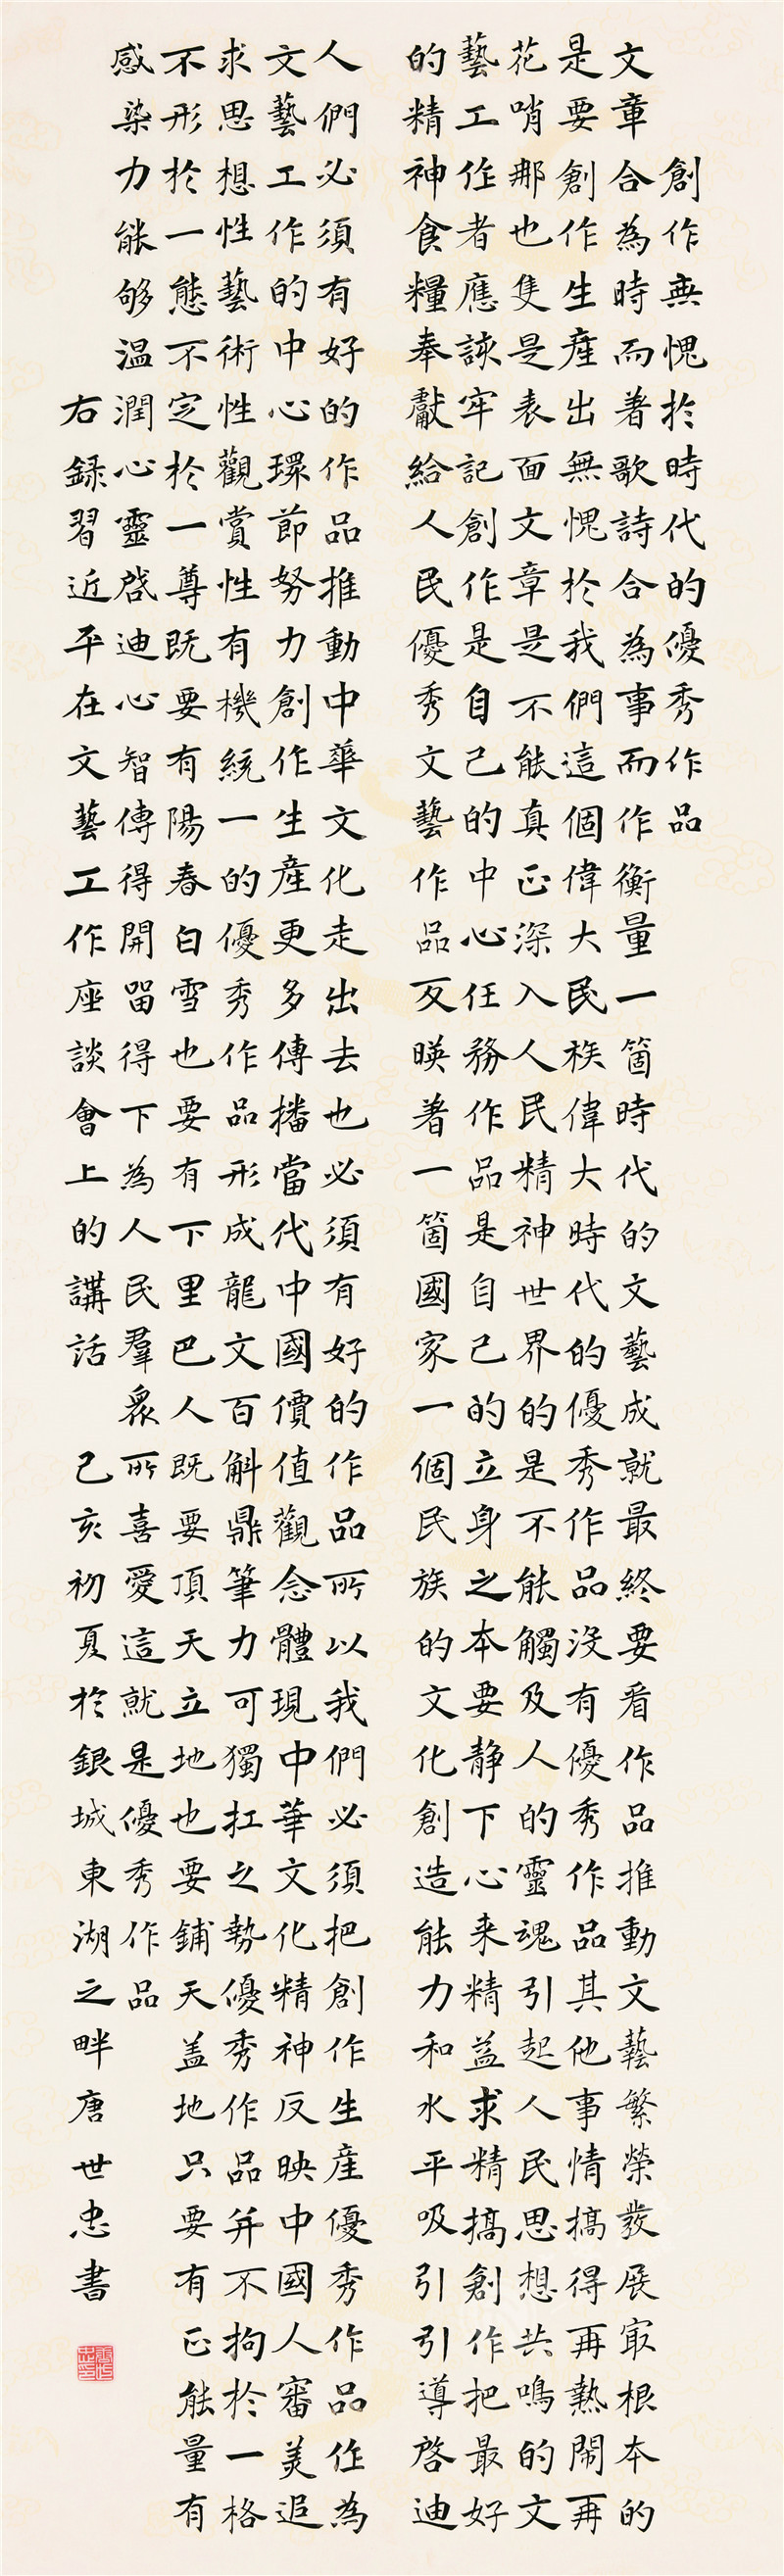 創作無愧於時代的優秀作品
文章合為時而著歌詩合為事而作衡量一箇時代的文藝成就最終要看作品推動文藝繁榮發展㝡根本的
是要創作生產出無愧於我們這個偉大民族偉大時代的優秀作品沒有優秀作品其他事情搞得再熱鬧再
花哨那也隻是表面文章是不能真正深入人民精神世界的是不能觸及人的靈魂引起人民思想共鳴的文
藝工作者應該牢記創作是自己的中心任務作品是自己的立身之本要静下心来精益求精搞創作把最好
的精神食糧奉獻給人民優秀文藝作品反暎著一箇國家一個民族的文化創造能力和水平吸引引導啓迪
人們必須有好的作品推動中華文化走出去也必須有好的作品所以我們必須把創作生產優秀作品作為
文藝工作的中心環節努力創作生產更多傳播當代中國價值觀念體現中華文化精神反映中國人審美追
求思想性藝術性觀賞性有機統一的優秀作品形成龍文百斛鼎筆力可獨扛之勢優秀作品并不拘於一格
不形於一態不定於一尊既要有陽春白雪也要有下里巴人既要頂天立地也要鋪天盖地只要有正能量有
感染力能够温潤心靈啓迪心智傳得開留得下為人民羣衆所喜愛這就是優秀作品
右録習近平在文藝工作座談會上的講話
己亥初夏於銀城東湖之畔唐世忠書